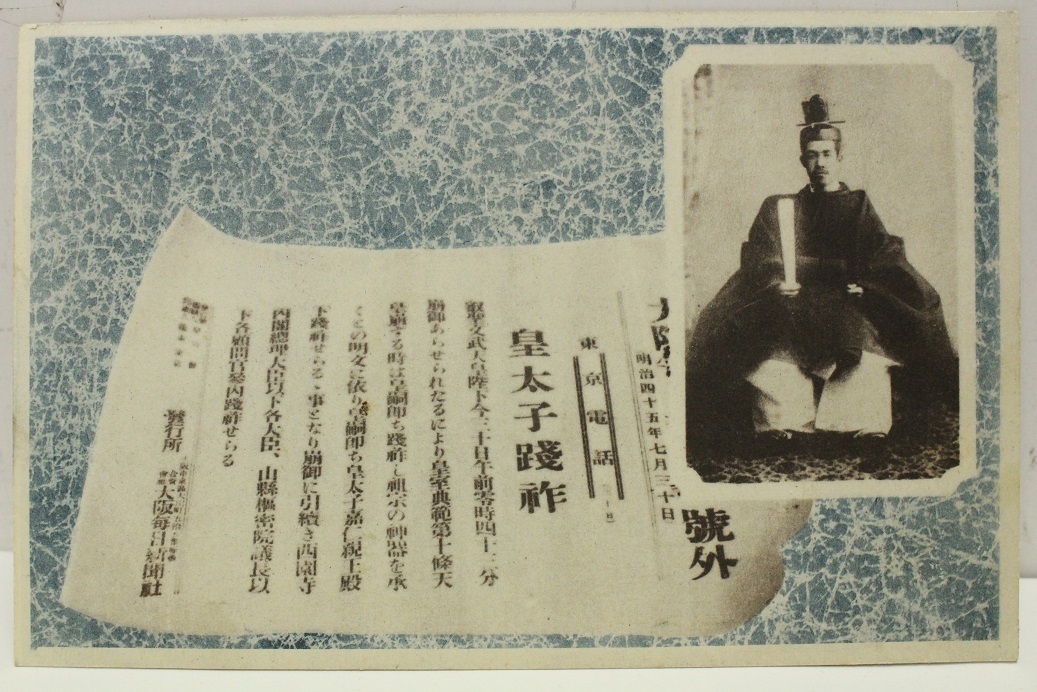 大阪
號外
明治四十五年七月三十日
東京電話
皇太子踐祚
叡聖文武天皇陛下今三十日午前零時四十三分
崩御あらせられたるにより皇室典範第十條天
皇崩ずる時は皇嗣卽ち踐祚し祖宗の神器を承
くとの明文に依り皇嗣卽ち皇太子嘉仁親王殿
下踐祚せらるゝ事となり崩御に引續き西園寺
內閣總理大臣以下各大臣、山縣樞密院議長以
下各顧問官參內踐祚せらる
發行所
大阪每日新聞社